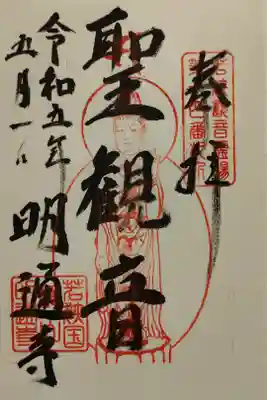 奉拝
聖観音
明通寺
令和五年
五月一日
若狭国